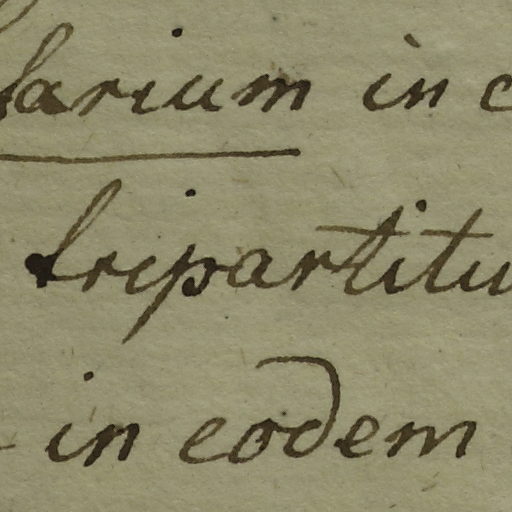 larium in c
tripartitu
in eodem